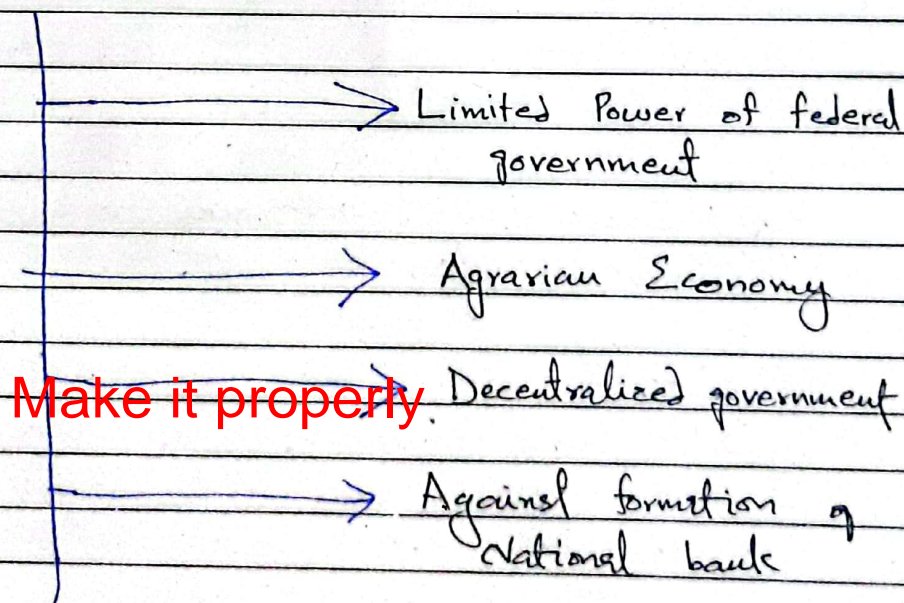 Limited Power of federal
government
Agrarian Economy
Make it properly
Decentralized government
Against formation of
National bank